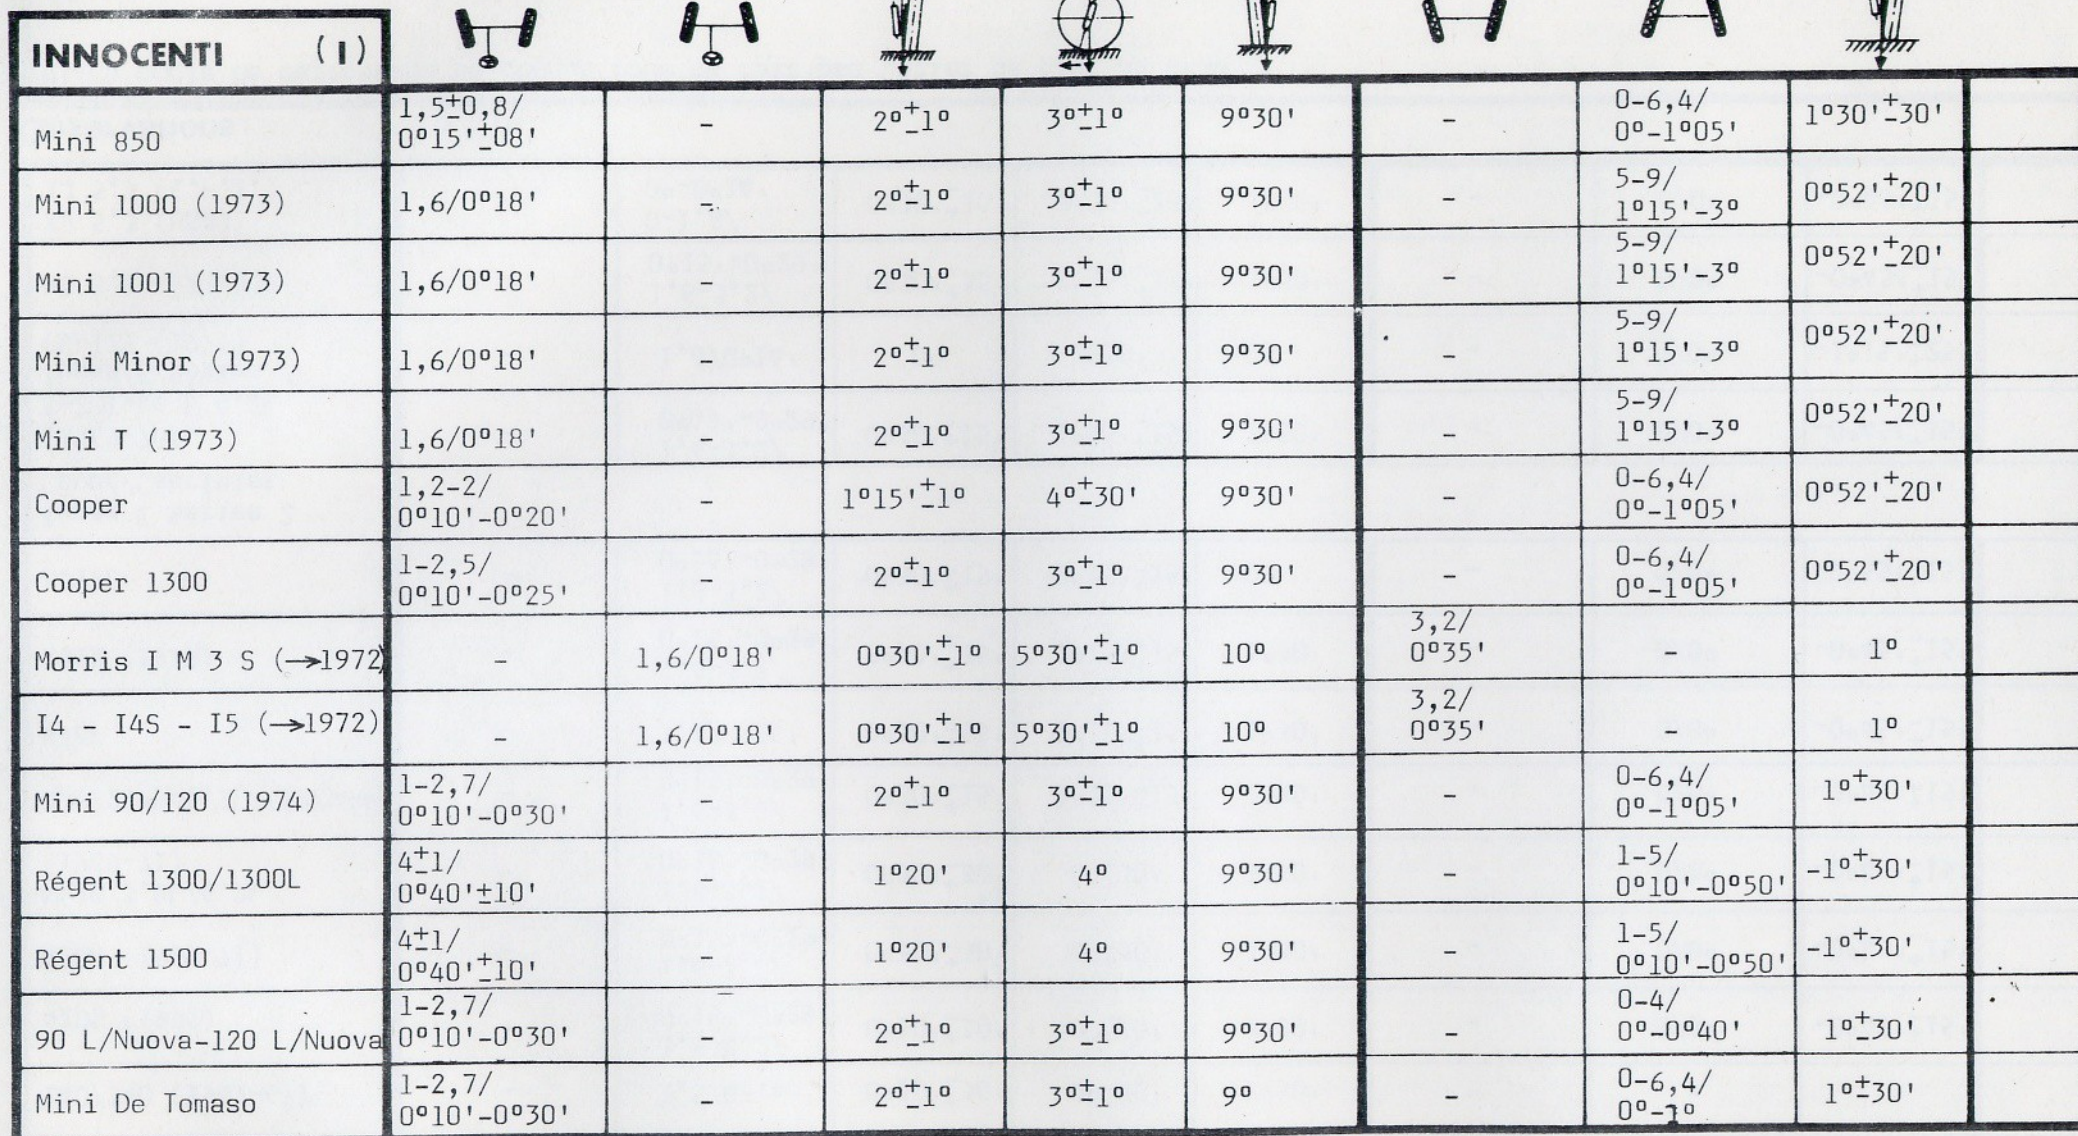 INNOCENTI (I)
Mini 850 1,5±0,8/ 0°15'±08' - 2°±1° 3°±1° 9°30' - 0-6,4/ 0°-1°05' 1°30'±30'
Mini 1000 (1973) 1,6/0°18' - 2°±1° 3°±1° 9°30' - 5-9/ 1°15'-3° 0°52'±20'
Mini 1001 (1973) 1,6/0°18' - 2°±1° 3°±1° 9°30' - 5-9/ 1°15'-3° 0°52'±20'
Mini Minor (1973) 1,6/0°18' - 2°±1° 3°±1° 9°30' - 5-9/ 1°15'-3° 0°52'±20'
Mini T (1973) 1,6/0°18' - 2°±1° 3°±1° 9°30' - 5-9/ 1°15'-3° 0°52'±20'
Cooper 1,2-2/ 0°10'-0°20' - 1°15'±1° 4°±30' 9°30' - 0-6,4/ 0°-1°05' 0°52'±20'
Cooper 1300 1-2,5/ 0°10'-0°25' - 2°±1° 3°±1° 9°30' - 0-6,4/ 0°-1°05' 0°52'±20'
Morris I M 3 S (→1972) - 1,6/0°18' 0°30'±1° 5°30'±1° 10° 3,2/ 0°35' - 1°
I4 - I4S - I5 (→1972) - 1,6/0°18' 0°30'±1° 5°30'±1° 10° 3,2/ 0°35' - 1°
Mini 90/120 (1974) 1-2,7/ 0°10'-0°30' - 2°±1° 3°±1° 9°30' - 0-6,4/ 0°-1°05' 1°±30'
Régent 1300/1300L 4±1/ 0°40'±10' - 1°20' 4° 9°30' - 1-5/ 0°10'-0°50' -1°±30'
Régent 1500 4±1/ 0°40'±10' - 1°20' 4° 9°30' - 1-5/ 0°10'-0°50' -1°±30'
90 L/Nuova-120 L/Nuova 1-2,7/ 0°10'-0°30' - 2°±1° 3°±1° 9°30' - 0-4/ 0°-0°40' 1°±30'
Mini De Tomaso 1-2,7/ 0°10'-0°30' - 2°±1° 3°±1° 9° - 0-6,4/ 0°-1° 1°±30'